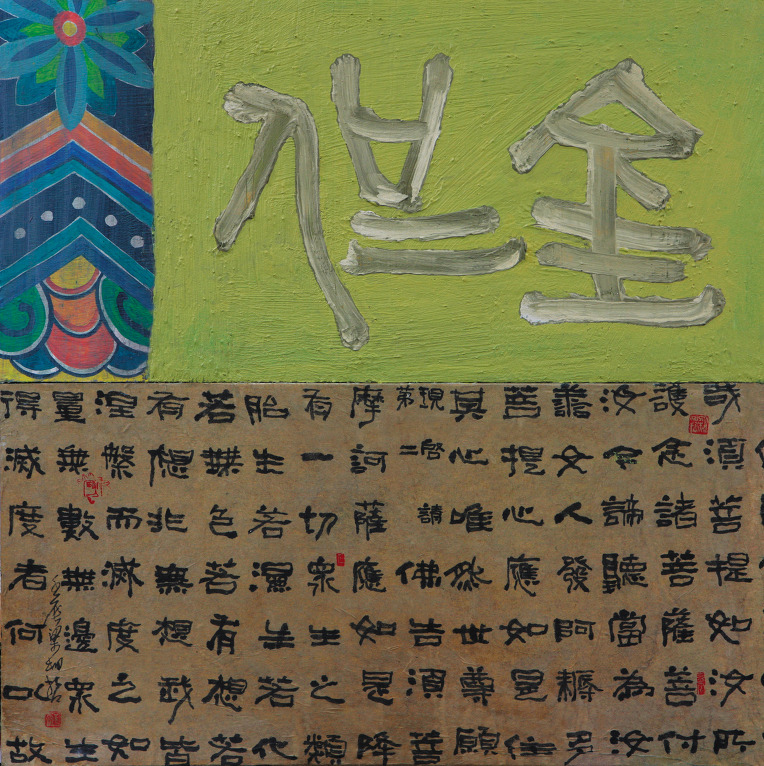 金
哉須菩提如汝所
護念諸菩薩善付
汝今諦聽當為汝
善女人發阿耨多
菩提心應如是住
其心唯然世尊願
現啓請
第二
佛告須菩
摩訶薩應如是降
有一切眾生之類
胎生若濕生若化
若無色若有想若
有想非無想我皆
涅槃而滅度之如
量無數無邊眾生
得滅度者何以故